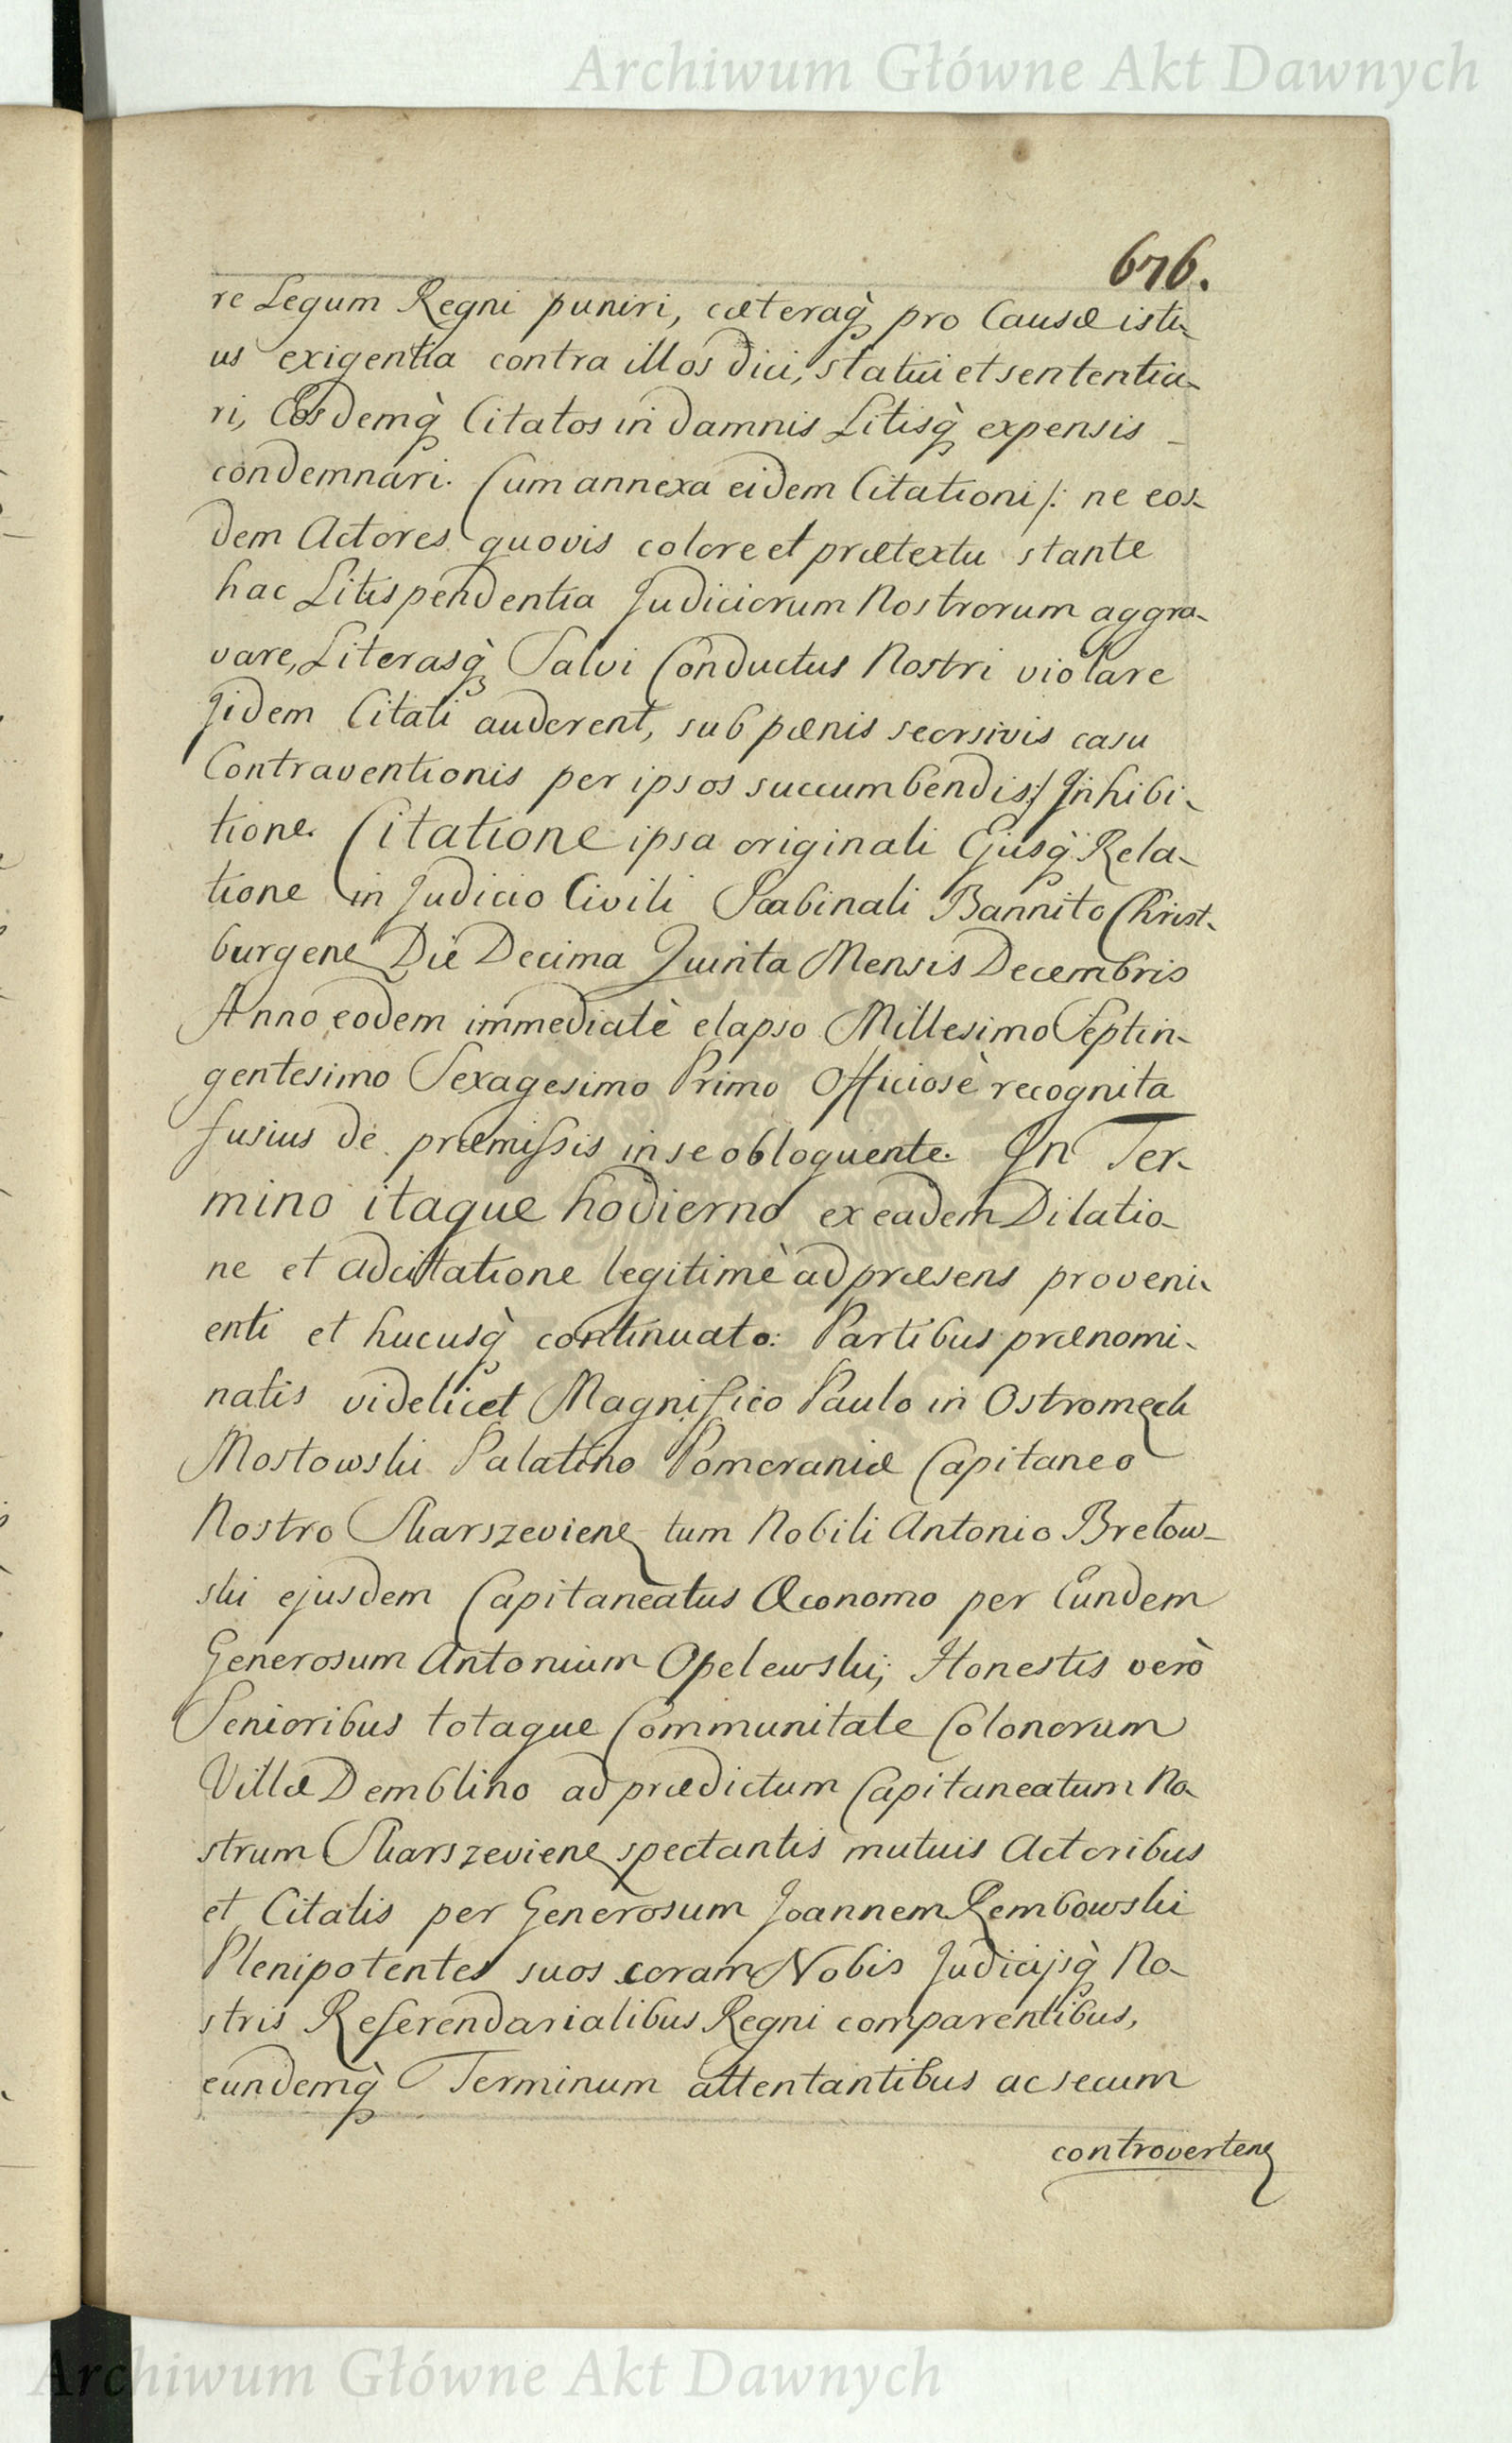 Archiwum Główne Akt Dawnych
676.
re Legum Regni puniri, cæteraq̀ pro Causæ isti-
us exigentia contra illos dici, statui et sententia-
ri, Eosdemq̀ Citatos in damnis Litisq̀ expensis -
condemnari. Cum annexa eidem Citationi /: ne eos-
dem Actores quovis colore et prætextu stante
hac Litispendentia Judiciorum Nostrorum aggra-
vare, Literasq̀ Salvi Conductus Nostri violare
Jidem Citati auderent, sub pænis seorsivis casu
Contraventionis per ipsos succumbendis :/ Inhibi-
tione. Citatione ipsa originali Ejusq̀ Rela-
tione in Judicio Civili Scabinali Bannito Christ-
burgen Die Decima Quinta Mensis Decembris
Anno eodem immediatè elapso Millesimo Septin-
gentesimo Sexagesimo Primo Officiosè recognita
fusius de præmissis in se obloquente. In Ter-
mino itaque hodierno ex eadem Dilatio-
ne et adcitatione legitimè ad præsens proveni-
enti et hucusq̀ continuato: Partibus prænomi-
natis videlicet Magnifico Paulo in Ostromęck
Mostowski Palatino Pomeraniæ Capitaneo
Nostro Skarszevien tum Nobili Antonio Bretow-
ski ejusdem Capitaneatus Œconomo per Eundem
Generosum Antonium Opelewski; Honestis verò
Senioribus totaque Communitate Colonorum
Villæ Demblino ad prædictum Capitaneatum No-
strum Skarszevien spectantis mutuis Actoribus
et Citatis per Generosum Joannem Rembowski
Plenipotentes suos coram Nobis Judicijsq̀ No-
stris Referendarialibus Regni comparentibus,
eundemq̀ Terminum attentantibus ac secum
controverten
Archiwum Główne Akt Dawnych